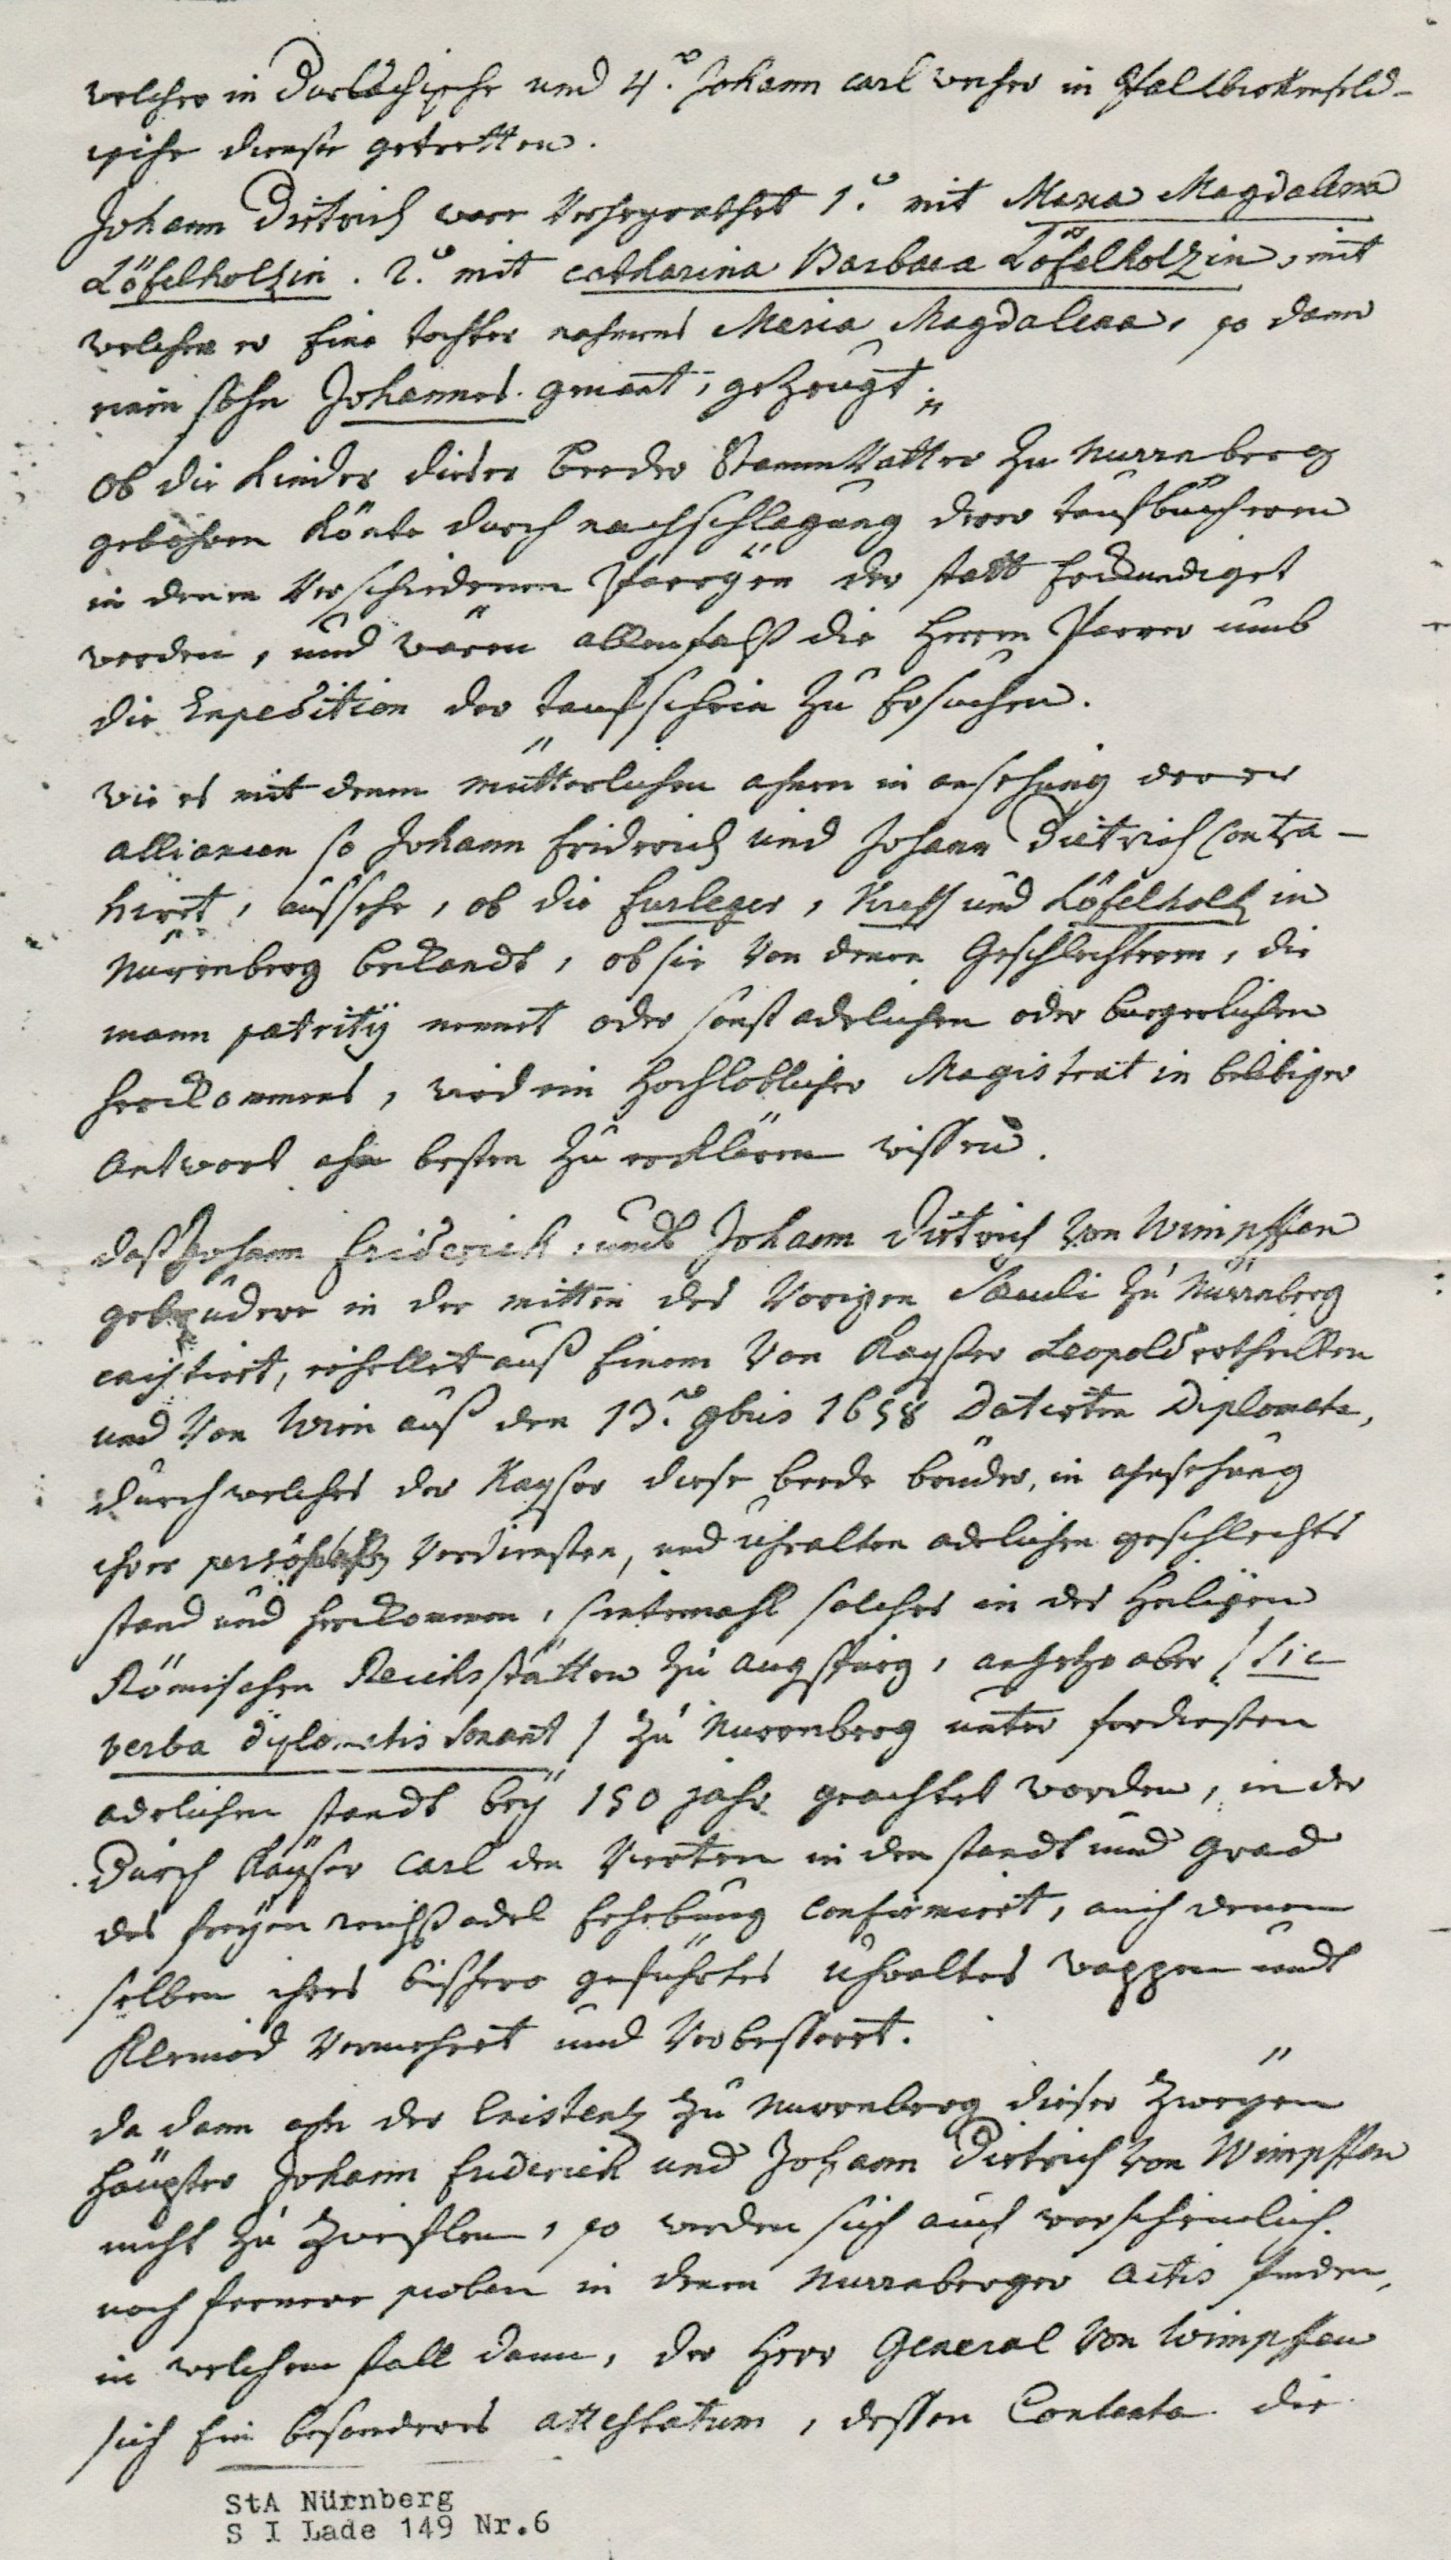 welcher in Durlachische und 4.to Johann Carl welcher in Pfaltzbirkenfeld-
ische dienste getretten.
Johann Dietrich ware Verheyrathet 1.o mit Maria Magdalena
Löfelholtzin. 2.o mit catharina Barbara Löfelholtzin, mit
welcher er Eine tochter nahmens Maria Magdalena, so dann
einen sohn Johannes genant, gezeugt.
Ob die Kinder dieser beeder StammVatter zu Nurrnberg
gebohren könte durch nachschlagung derer taufbücheren
in denen Verschiedenen Pfarreyen der statt Erkundiget
werden, und wären allenfalß die Herren Pfarrer umb
die Expedition der taufschein zu Ersuchen.
wie es mit denen mütterlichen ahnen in ansehung derer
alliancen so Johann Friderich und Johann Dietrich Contra-
hirt, aussehe, ob die Furleger, Kress und Löfelholtz in
Nürrnberg bekandt, ob sie Von denen Geschlechteren, die
mann patritÿ nennet oder sonst adelichen oder burgerlichen
herkommens, wird ein Hochlöblicher Magistrat in beliebiger
Antwort ahm besten zu erklären wissen.
daß Johann Friderich, undt Johann Dietrich Von Wimpffen
gebrüdere in der mitten des Vorigen Sæculi zu Nürrnberg
existirt, erhellet auß Einem Von Kayser Leopold ertheilten
und Von Wien auß den 13.to 9bris 1658 Datirten Diplomate,
durch welches der Kayser diese beede brüder, in ahnsehung
ihrer persöhnlichen Verdiensten, und uhralten adelichen geschlechts
stand und herkommen, sintemahl solches in des Heiligen
Römischen Reichsstätten zu augspurg, anjetzo aber / sic
verba diplomatis sonant / zu Nurrnberg unter fordersten
adelichen standt beÿ 150 jahr geachtet worden, in der
Durch Kaÿser Carl den Vierten in den standt und Grad
des freÿen reichsadel Erhebung confirmirt, auch denen
selben ihres bishero geführtes uhraltes wappen undt
Kleinod Vermehret und Verbessert.
da dann ahn der Existentz zu Nurrnberg dieser zweÿen
häupter Johann Friderich und Johann Dietrich Von Wimpffen
nicht zu zweiflen, so werden sich auch warscheinlich
noch fernere proben in denen Nurrnberger Actis finden,
in welchem fall dann, der Herr General Von Wimpffen
sich Ein besonderes attestatum, dessen Contenta die
StA Nürnberg
S I Lade 149 Nr.6